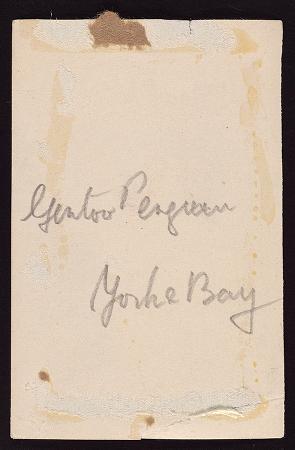 Gentoo Penguin
Yorke Bay